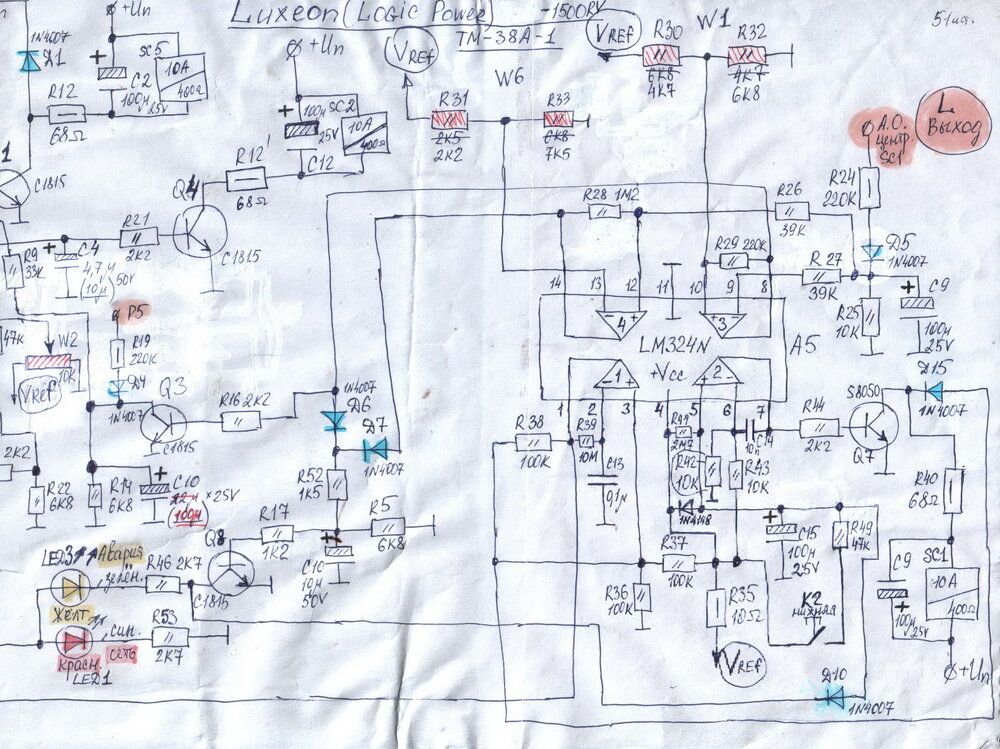 Luxeon (Logic Power) -1500RV
TM-38A-1
51лист.
+Un
1N4007
D1
C2
100µ
25V
SC5
10A
400Ω
R12
68Ω
1
C1815
+Un
100µ
25V
SC2
10A
400Ω
C12
R12'
68Ω
Q4
C1815
R21
2K2
VREF
R31
2K5
2K2
W6
R33
6K8
7K5
VREF
R30
6K8
4K7
W1
R32
4K7
6K8
L
Выход
А.О.
центр.
SC1
R24
220K
D5
1N4007
R26
39K
R27
39K
R25
10K
C9
100µ
25V
R28 1M2
R29 220K
14 13 12 11 10 9 8
4 3
LM324N
A5
+Vcc
1 2
1 2 3 4 5 6 7
R9
33K
C4
4,7µ
(10µ) 50V
P5
R19
220K
D4
1N4007
Q3
C1815
47K
W2
10K
VREF
R16 2K2
1N4007
D6
D7
1N4007
R52
1K5
2K2
R22
6K8
R14
6K8
C10
22µ × 25V
(100µ)
R17
1K2
R5
6K8
C10
10µ
50V
Q8
C1815
LED3
Авария
зелён.
жёлт.
R46 2K7
син.
сеть
красн.
LED1
R53
2K7
R38
100K
R39
10M
C13
0,1µ
R41
2M7
R42
10K
R43
10K
C14
10n
1N4148
R44
2K2
S8050
Q7
D15
1N4007
R40
68Ω
R37
100K
R36
100K
R35
10Ω
VREF
C15
100µ
25V
R49
47K
K2
нижняя
D10
1N4007
C9
100µ
25V
SC1
10A
400Ω
+Un